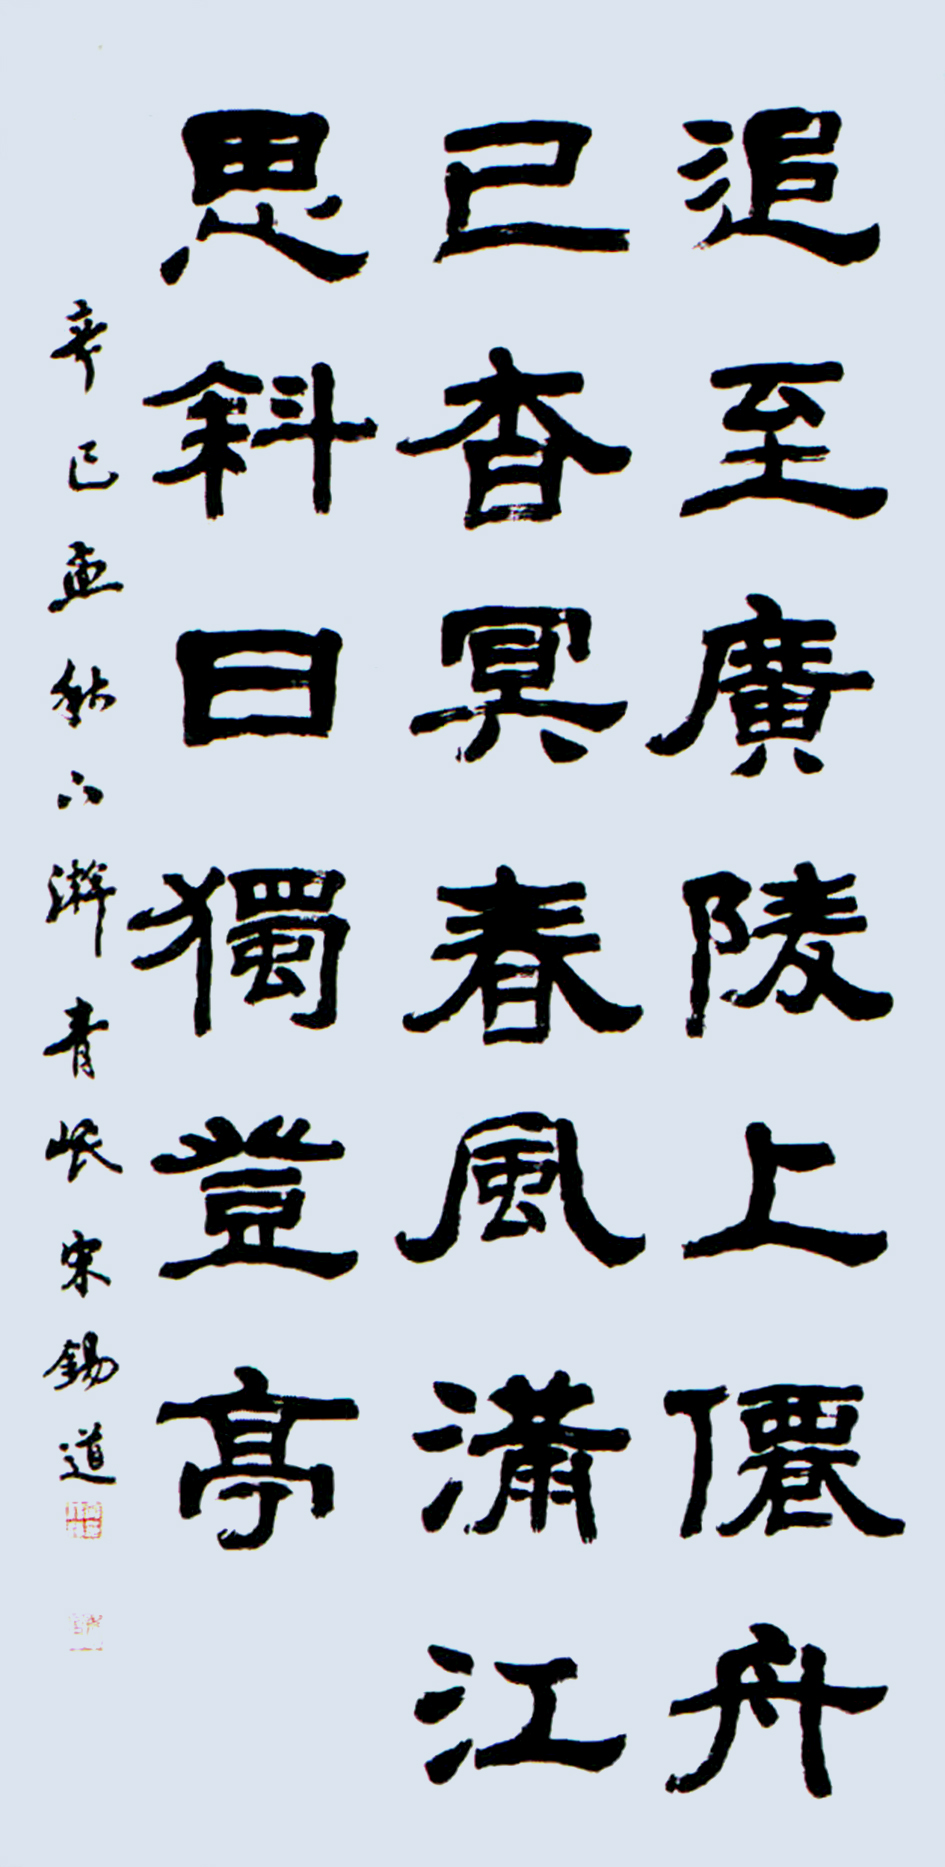 追至廣陵上僊舟
已杳冥春風滿江
思斜日獨登亭
辛巳孟秋下澣青岷宋錫道